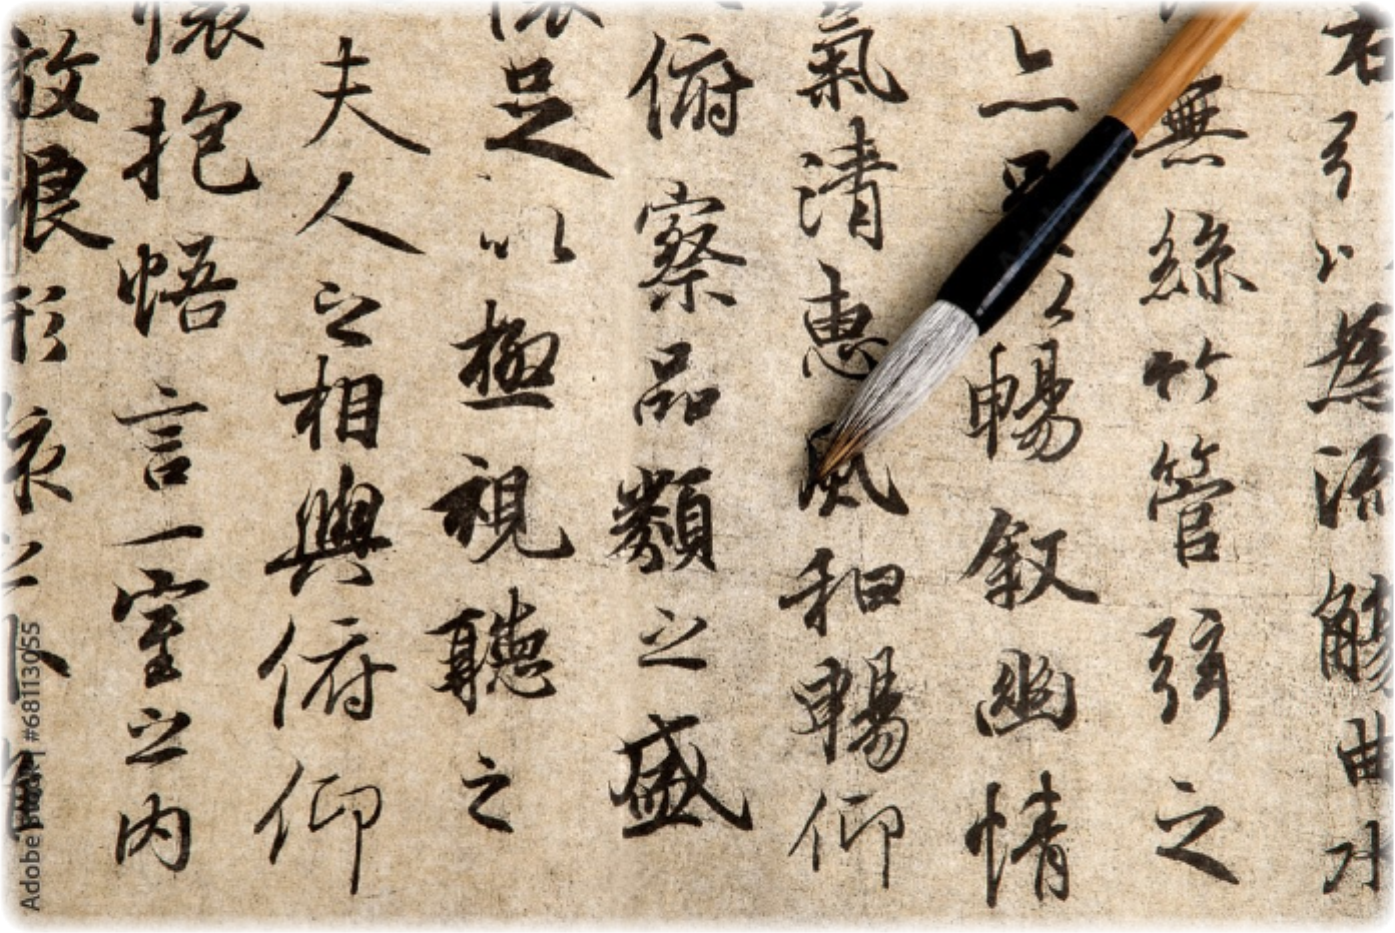 右引以為流觴曲水
無絲竹管弦之
亦足以暢叙幽情
氣清惠風和暢仰
俯察品類之盛
懷足以極視聽之
夫人之相與俯仰
懷抱悟言一室之内
放浪形骸之外
Adobe Stock | #68113055